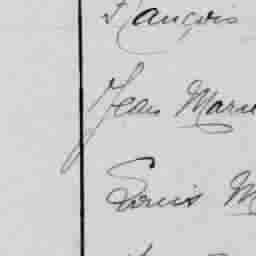 François
Jean Marie
Louis M